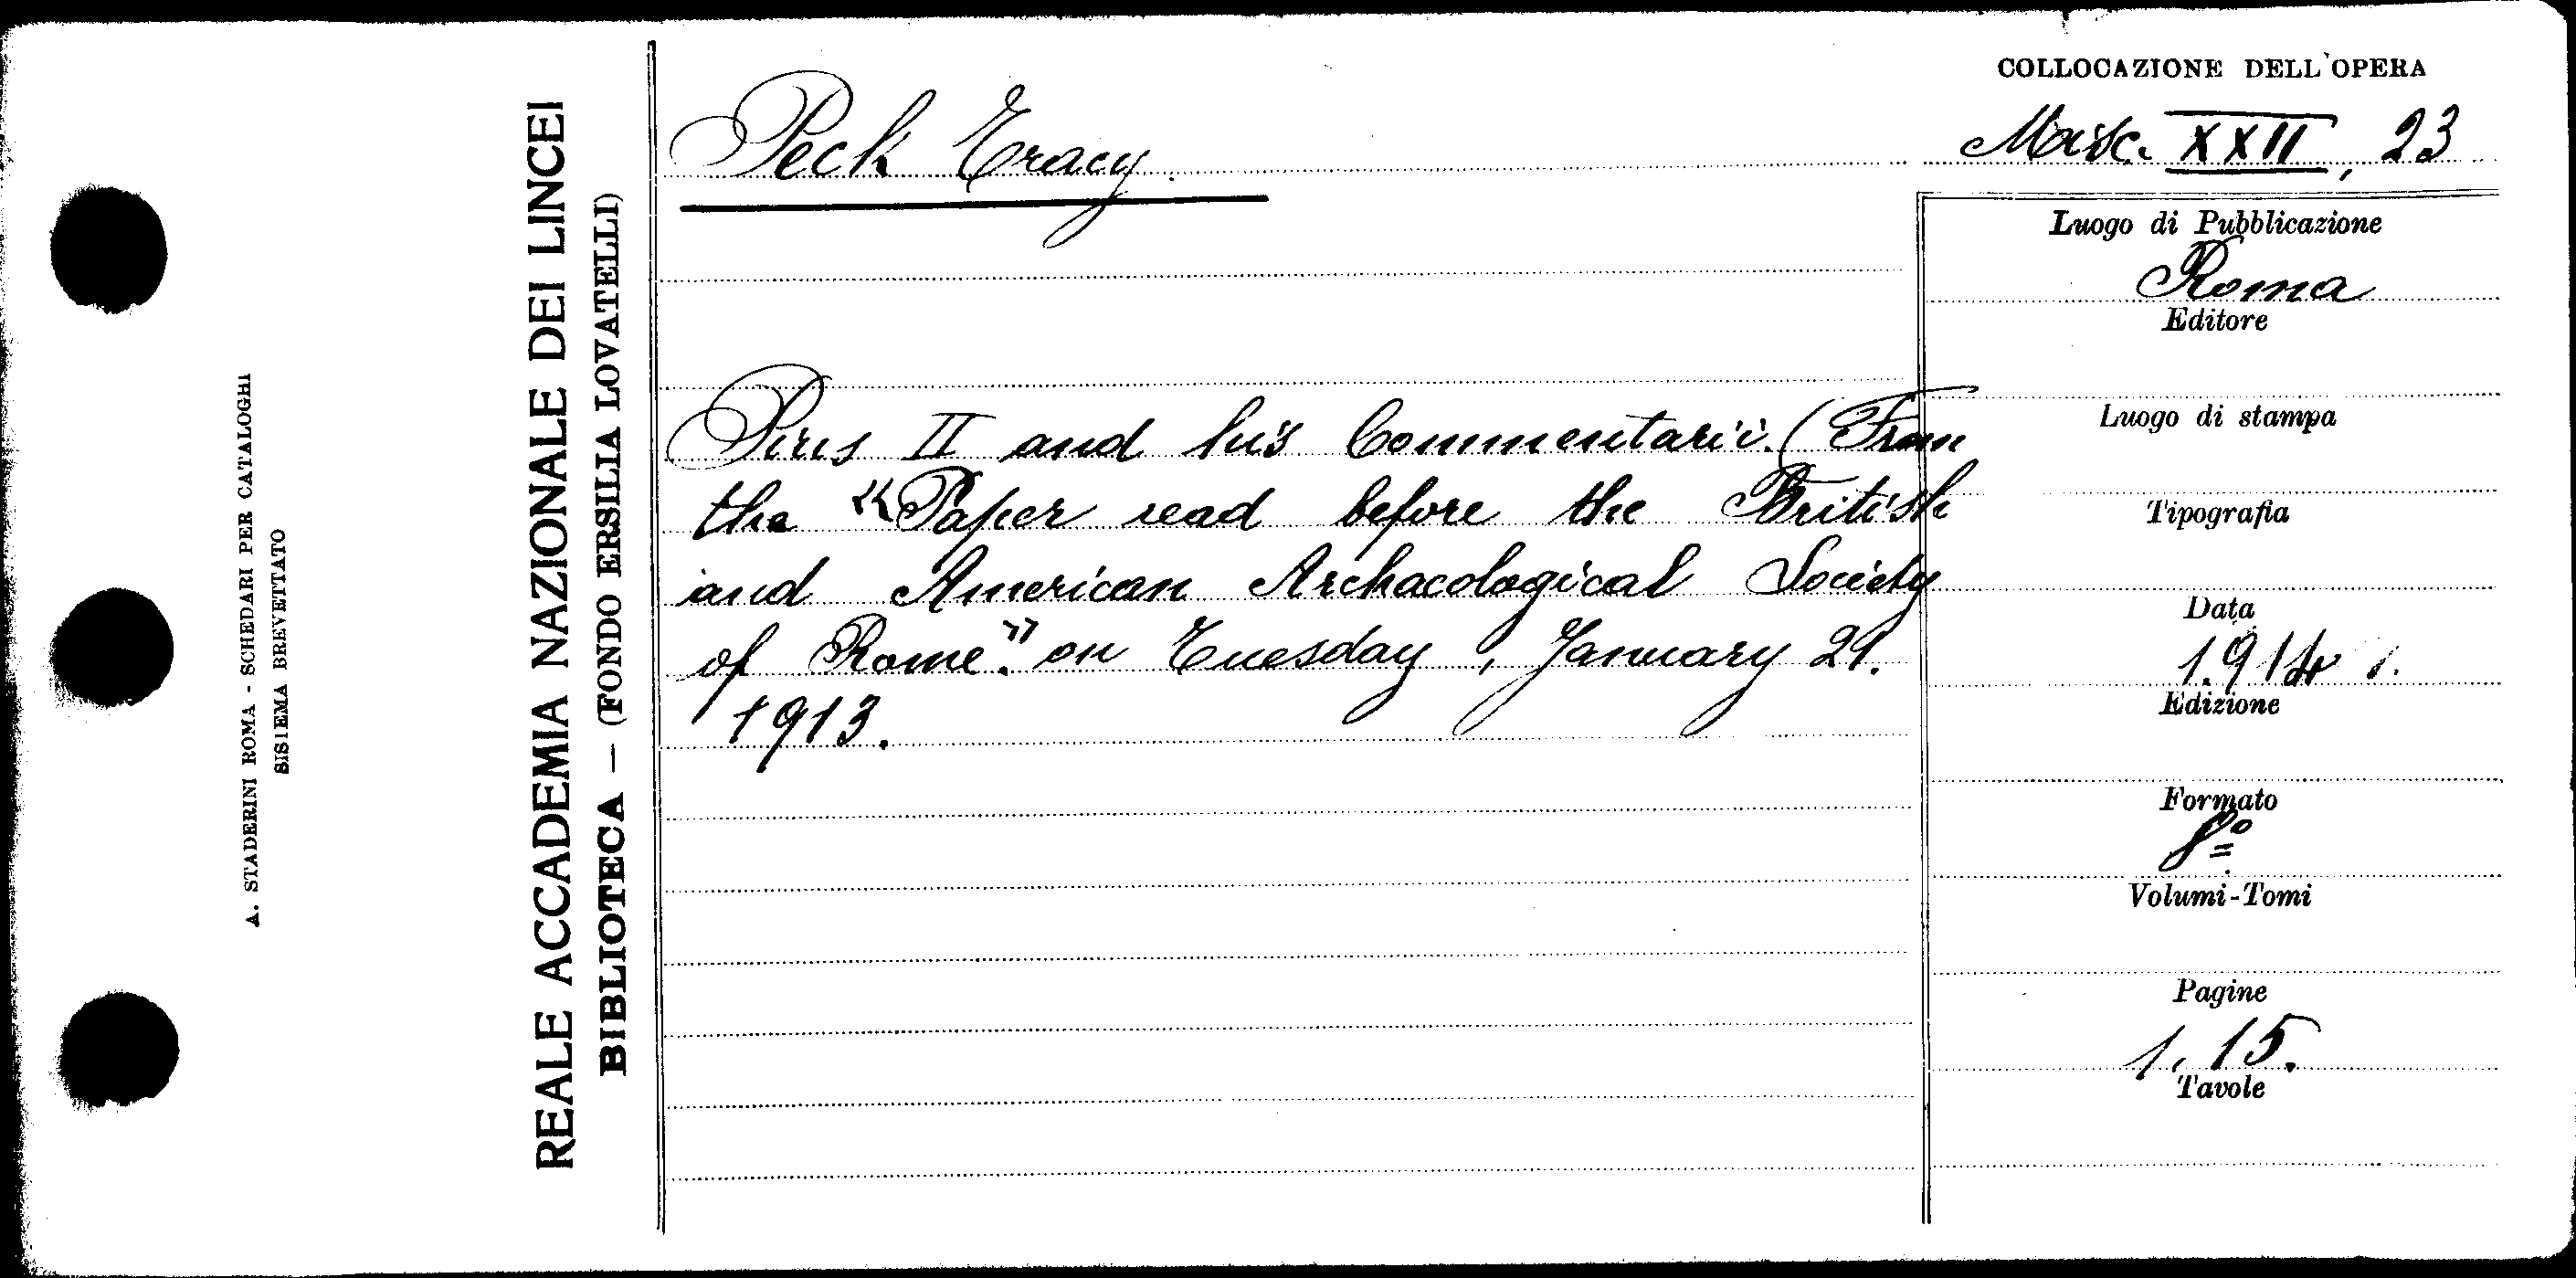 COLLOCAZIONE DELL'OPERA
Peck Tracy.
Misc. XXII, 23
Luogo di Pubblicazione
Roma
Editore
Pius II and his Commentarii. (From
the "Paper read before the British
and American Archaeological Society
of Rome." on Tuesday, January 21.
1913.
Luogo di stampa
Tipografia
Data
1914
Edizione
Formato
8º
Volumi-Tomi
Pagine
1. 15.
Tavole
REALE ACCADEMIA NAZIONALE DEI LINCEI
BIBLIOTECA — (FONDO ERSILIA LOVATELLI)
A. STADERINI ROMA - SCHEDARI PER CATALOGHI
SISTEMA BREVETTATO